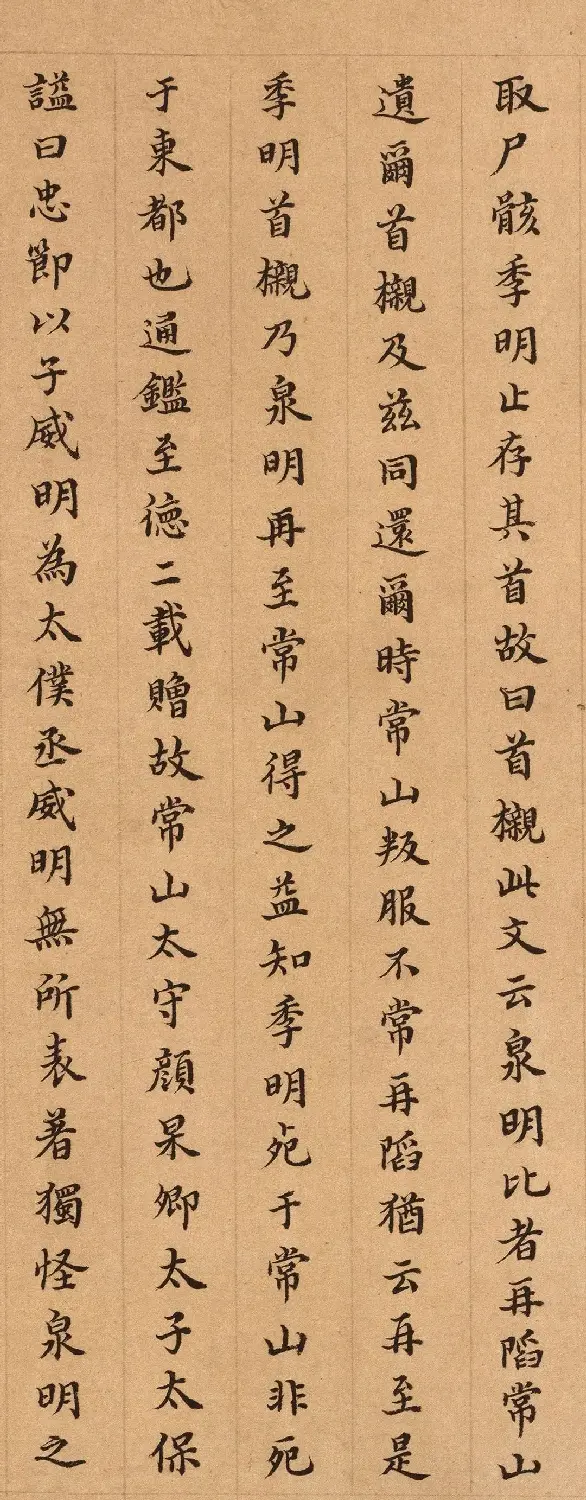 取尸骸季明止存其首故曰首櫬此文云泉明比者再䧟常山
遺爾首櫬及兹同還爾時常山叛服不常再䧟猶云再至是
季明首櫬乃泉明再至常山得之益知季明死于常山非死
于東都也通鑑至德二載贈故常山太守顔杲卿太子太保
謚曰忠節以子威明為太僕丞威明無所表著獨怪泉明之